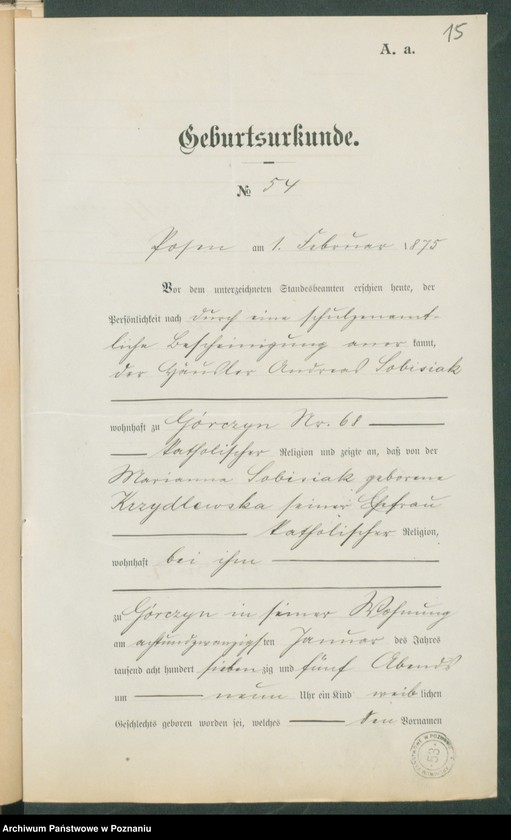 15
A. a.
Geburtsurkunde.
№ 54
Posen am 1. Februar 1875
Vor dem unterzeichneten Standesbeamten erschien heute, der
Persönlichkeit nach durch eine schulzenamt-
liche Bescheinigung aner kannt,
der Häusler Andreas Sobisiak
wohnhaft zu Górczyn Nr. 68
katholischer Religion und zeigte an, daß von der
Marianna Sobisiak geborene
Krzydlewska seiner Ehefrau
katholischer Religion,
wohnhaft bei ihm
zu Górczyn in seiner Wohnung
am achtundzwanzigsten Januar des Jahres
tausend acht hundert siebenzig und fünf Abends
um neun Uhr ein Kind weiblichen
Geschlechts geboren worden sei, welches den Vornamen
53
Archiwum Państwowe w Poznaniu